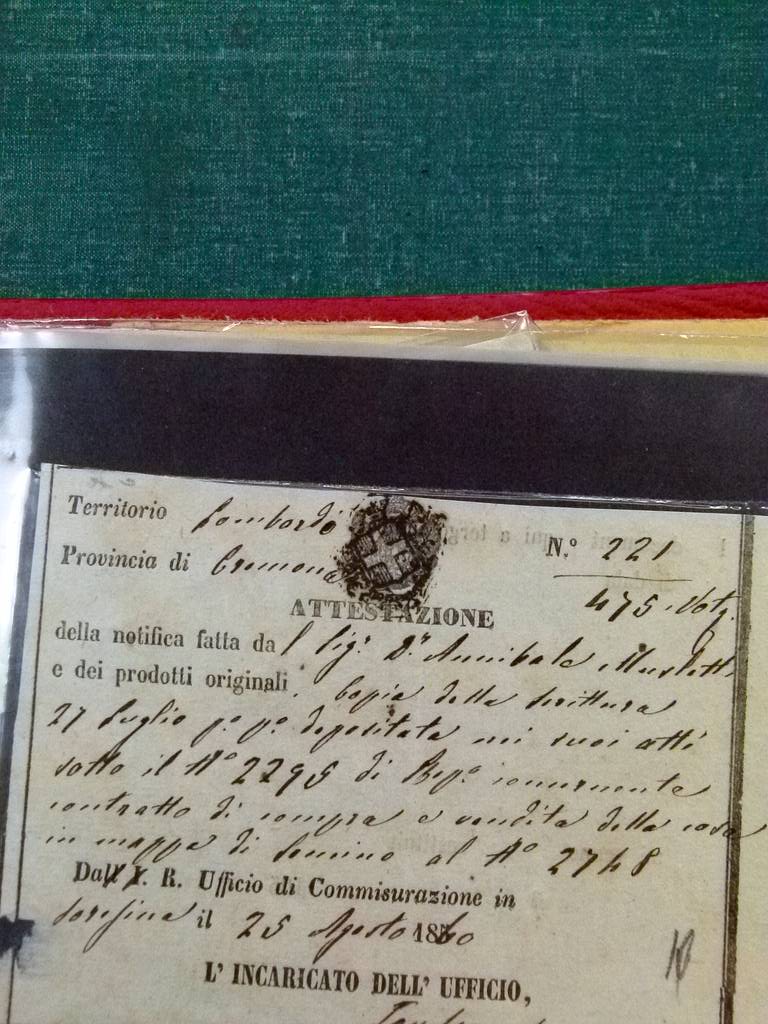 Territorio Lombardo
N.º 221
Provincia di Cremona
475. Not.
ATTESTAZIONE
della notifica fatta da l Sig.r D.r Annibale
e dei prodotti originali. Copia della scrittura
27 Luglio p.º p.º depositata nei suoi atti
sotto il Nº 2295 di Rep.º
contratto di compra e vendita della casa
in mappa di Soncino al Nº 2748
Dall' I. R. Ufficio di Commisurazione in
Soresina il 25 Agosto 1860
10
L' INCARICATO DELL' UFFICIO,